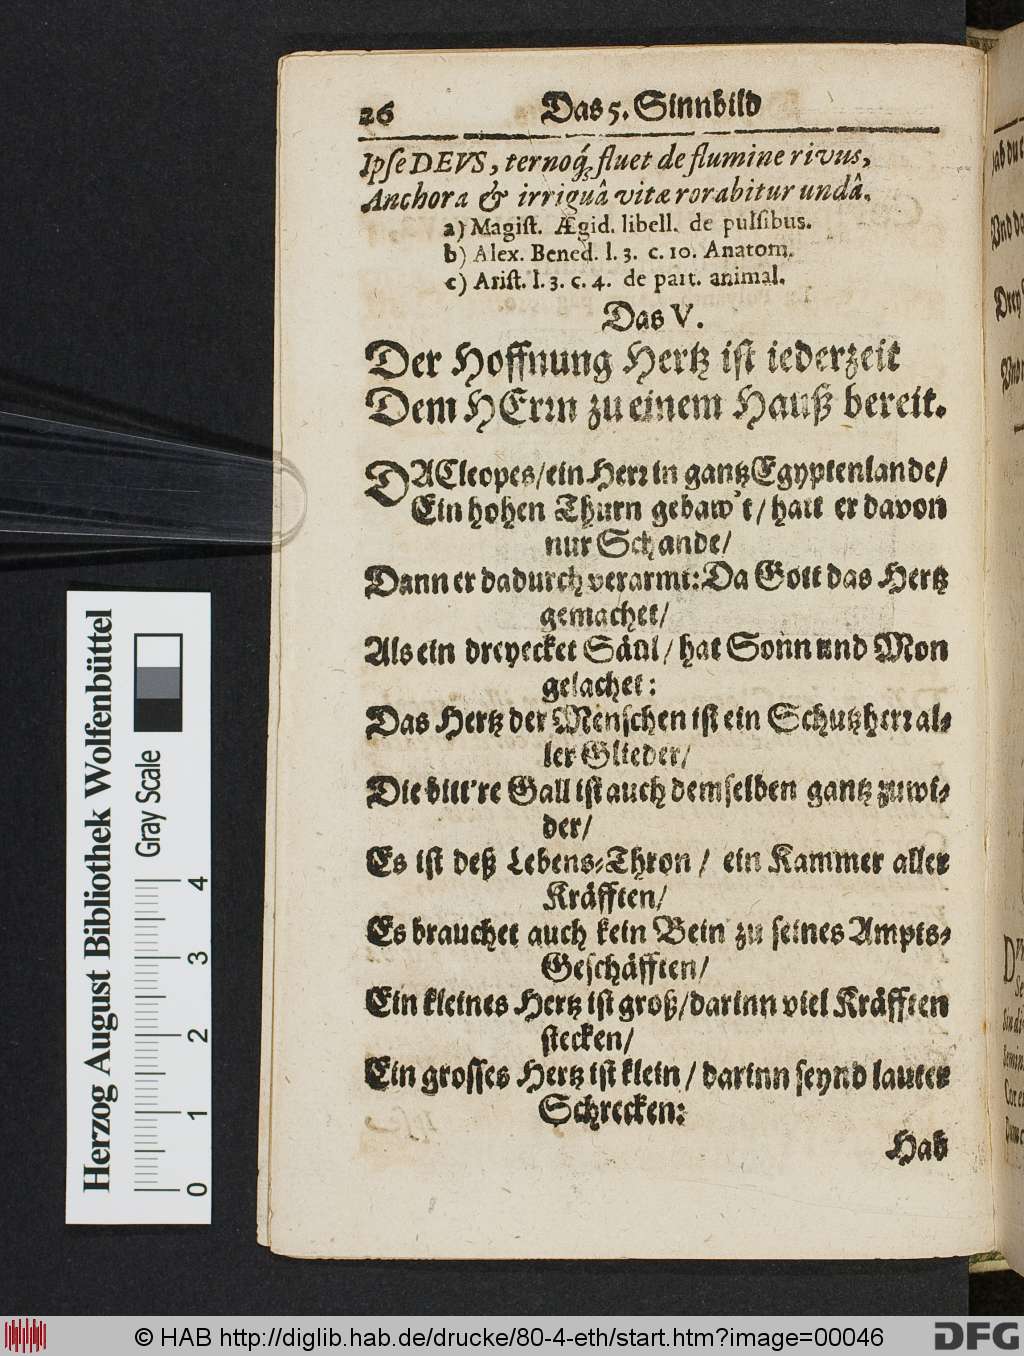 26 Das 5. Sinnbild
Ipse DEVS, ternoq́; fluet de flumine rivus,
Anchora & irriguâ vitæ rorabitur undâ.
a) Magist. Ægid. libell. de pulsibus.
b) Alex. Bened. l. 3. c. 10. Anatom.
c) Arist. l. 3. c. 4. de part. animal.
Das V.
Der Hoffnung Hertz ist iederzeit
Dem HErrn zu einem Hauß bereit.
DA Cleopes/ ein Herr in gantz Egyptenlande/
Ein hohen Thurn gebaw't/ hatt er davon
nur Schande/
Dann er dadurch verarmt: Da Gott das Hertz
gemachet/
Als ein dreyecket Säul/ hat Sonn und Mon
gelachet:
Das Hertz der Menschen ist ein Schutzherr al-
ler Glieder/
Die bitt're Gall ist auch demselben gantz zuwi-
der/
Es ist deß Lebens-Thron/ ein Kammer aller
Kräfften/
Es brauchet auch kein Bein zu seines Ampts-
Geschäfften/
Ein kleines Hertz ist groß/ darinn viel Kräfften
stecken/
Ein grosses Hertz ist klein/ darinn seynd lauter
Schrecken:
Hab
Herzog August Bibliothek Wolfenbüttel
Gray Scale
0 1 2 3 4
© HAB http://diglib.hab.de/drucke/80-4-eth/start.htm?image=00046
DFG